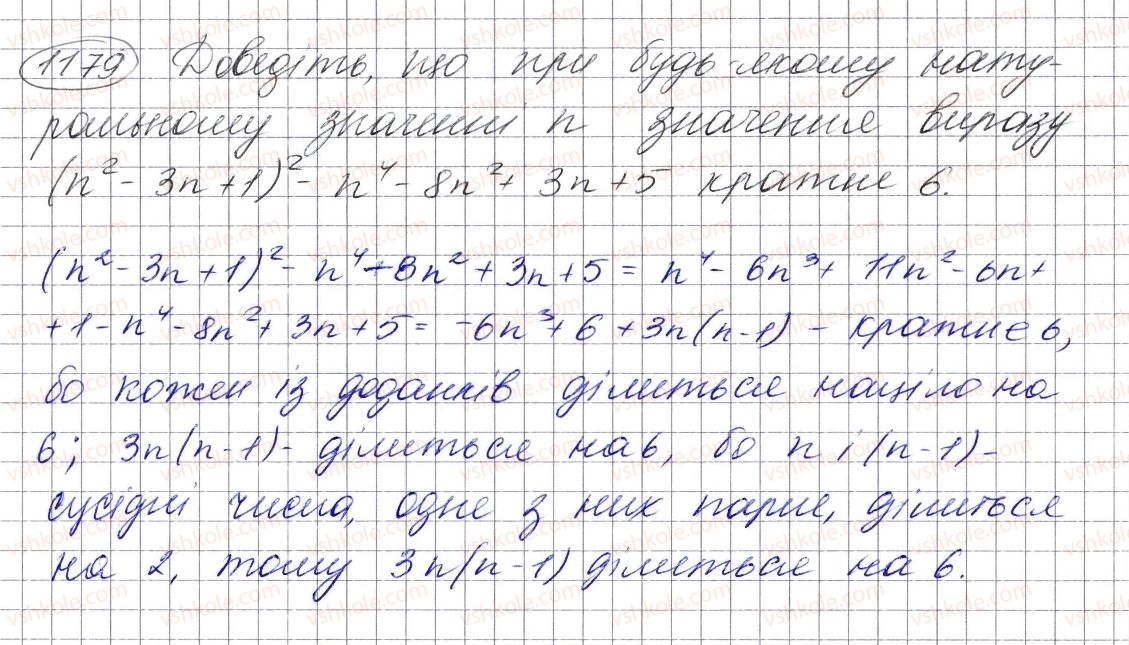 1179 Доведіть, що при будь-якому нату-
ральному значенні n значення виразу
(n² - 3n + 1)² - n⁴ - 8n² + 3n + 5 кратне 6.
(n² - 3n + 1)² - n⁴ - 8n² + 3n + 5 = n⁴ - 6n³ + 11n² - 6n +
+ 1 - n⁴ - 8n² + 3n + 5 = -6n³ + 6 + 3n(n-1) - кратне 6,
бо кожен із доданків ділиться націло на
6; 3n(n-1) - ділиться на 6, бо n і (n-1) -
сусідні числа, одне з них парне, ділиться
на 2, тому 3n(n-1) ділиться на 6.